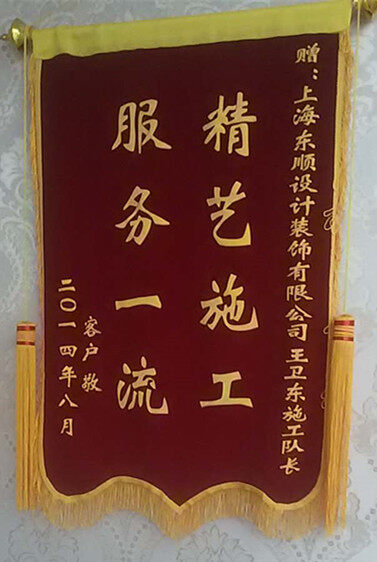 赠：上海东顺设计装饰有限公司王卫东施工队长
精艺施工
服务一流
客户敬
二〇一四年八月